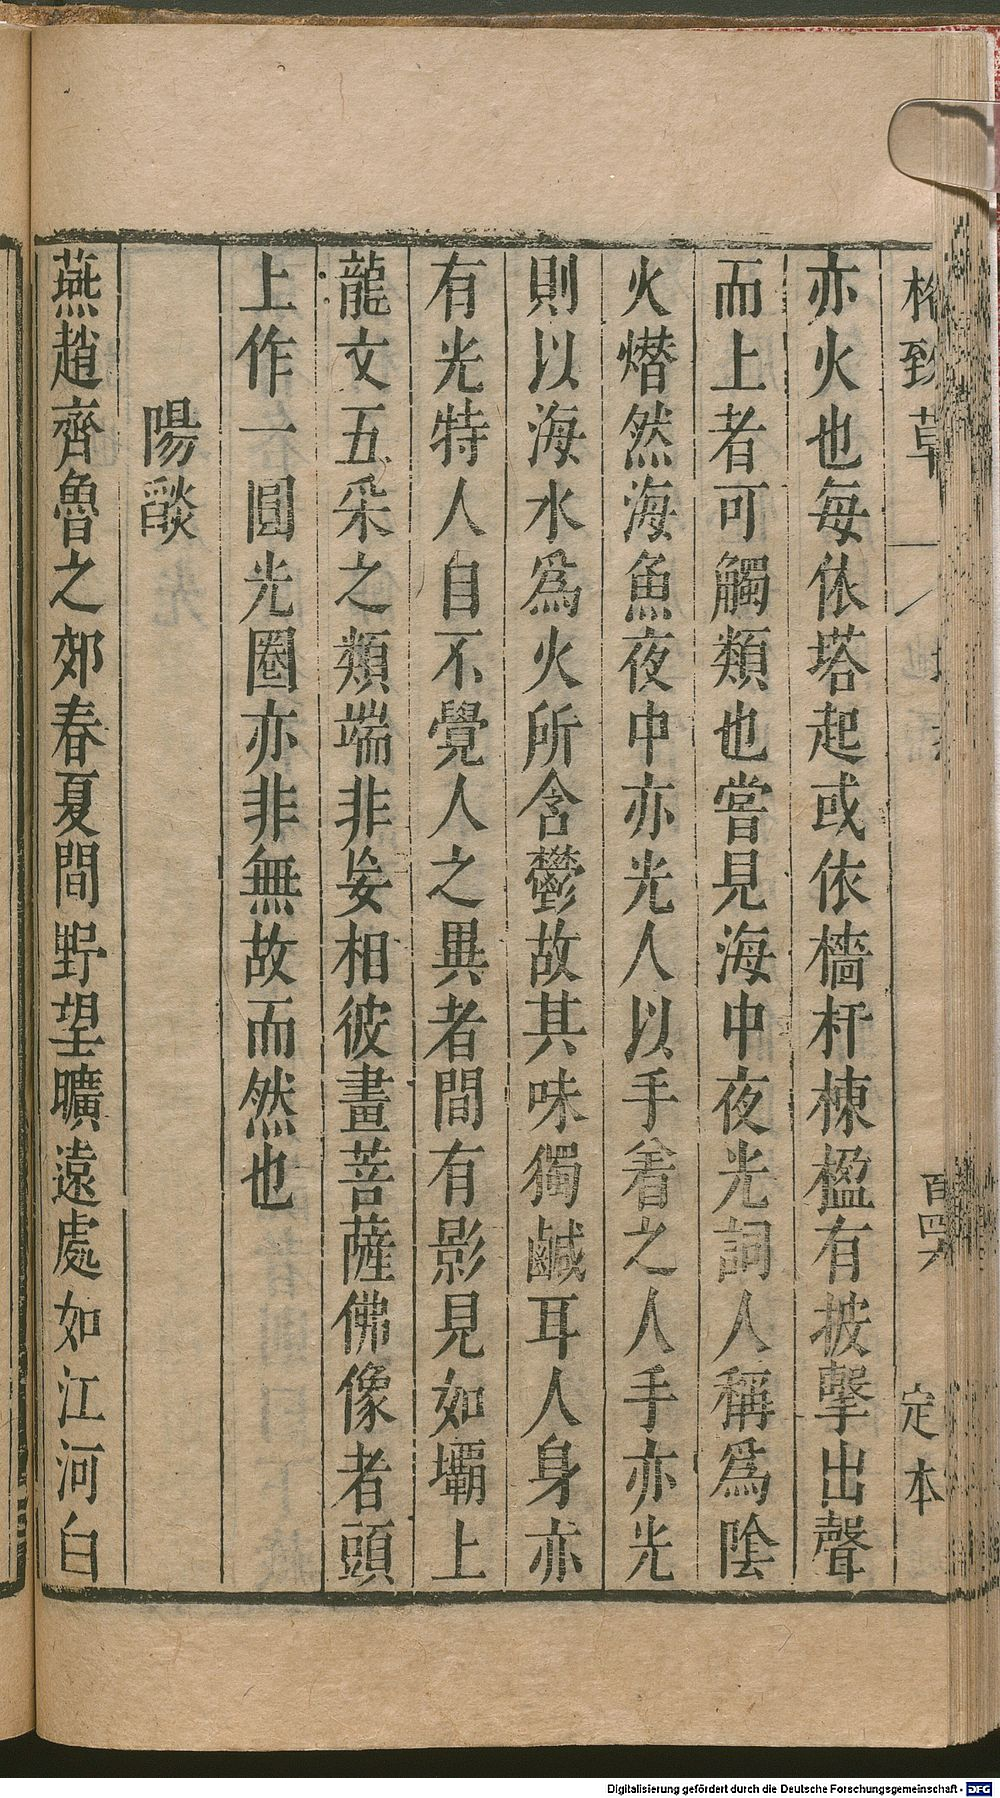 格致草
百四八
定本
亦火也每依塔起或依檣杆棟楹有披擊出聲
而上者可觸類也嘗見海中夜光詞人稱爲陰
火熸然海魚夜中亦光人以手着之人手亦光
則以海水爲火所含鬱故其味獨鹹耳人身亦
有光特人自不覺人之異者間有影見如壩上
龍文五采之類端非妄相彼畫菩薩佛像者頭
上作一圓光圈亦非無故而然也
陽燄
燕趙齊魯之郊春夏間野望曠遠處如江河白
Digitalisierung gefördert durch die Deutsche Forschungsgemeinschaft - DFG